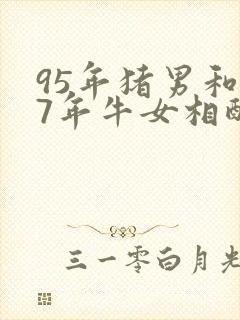 95年猪男和
7年牛女相配
三一零白月光